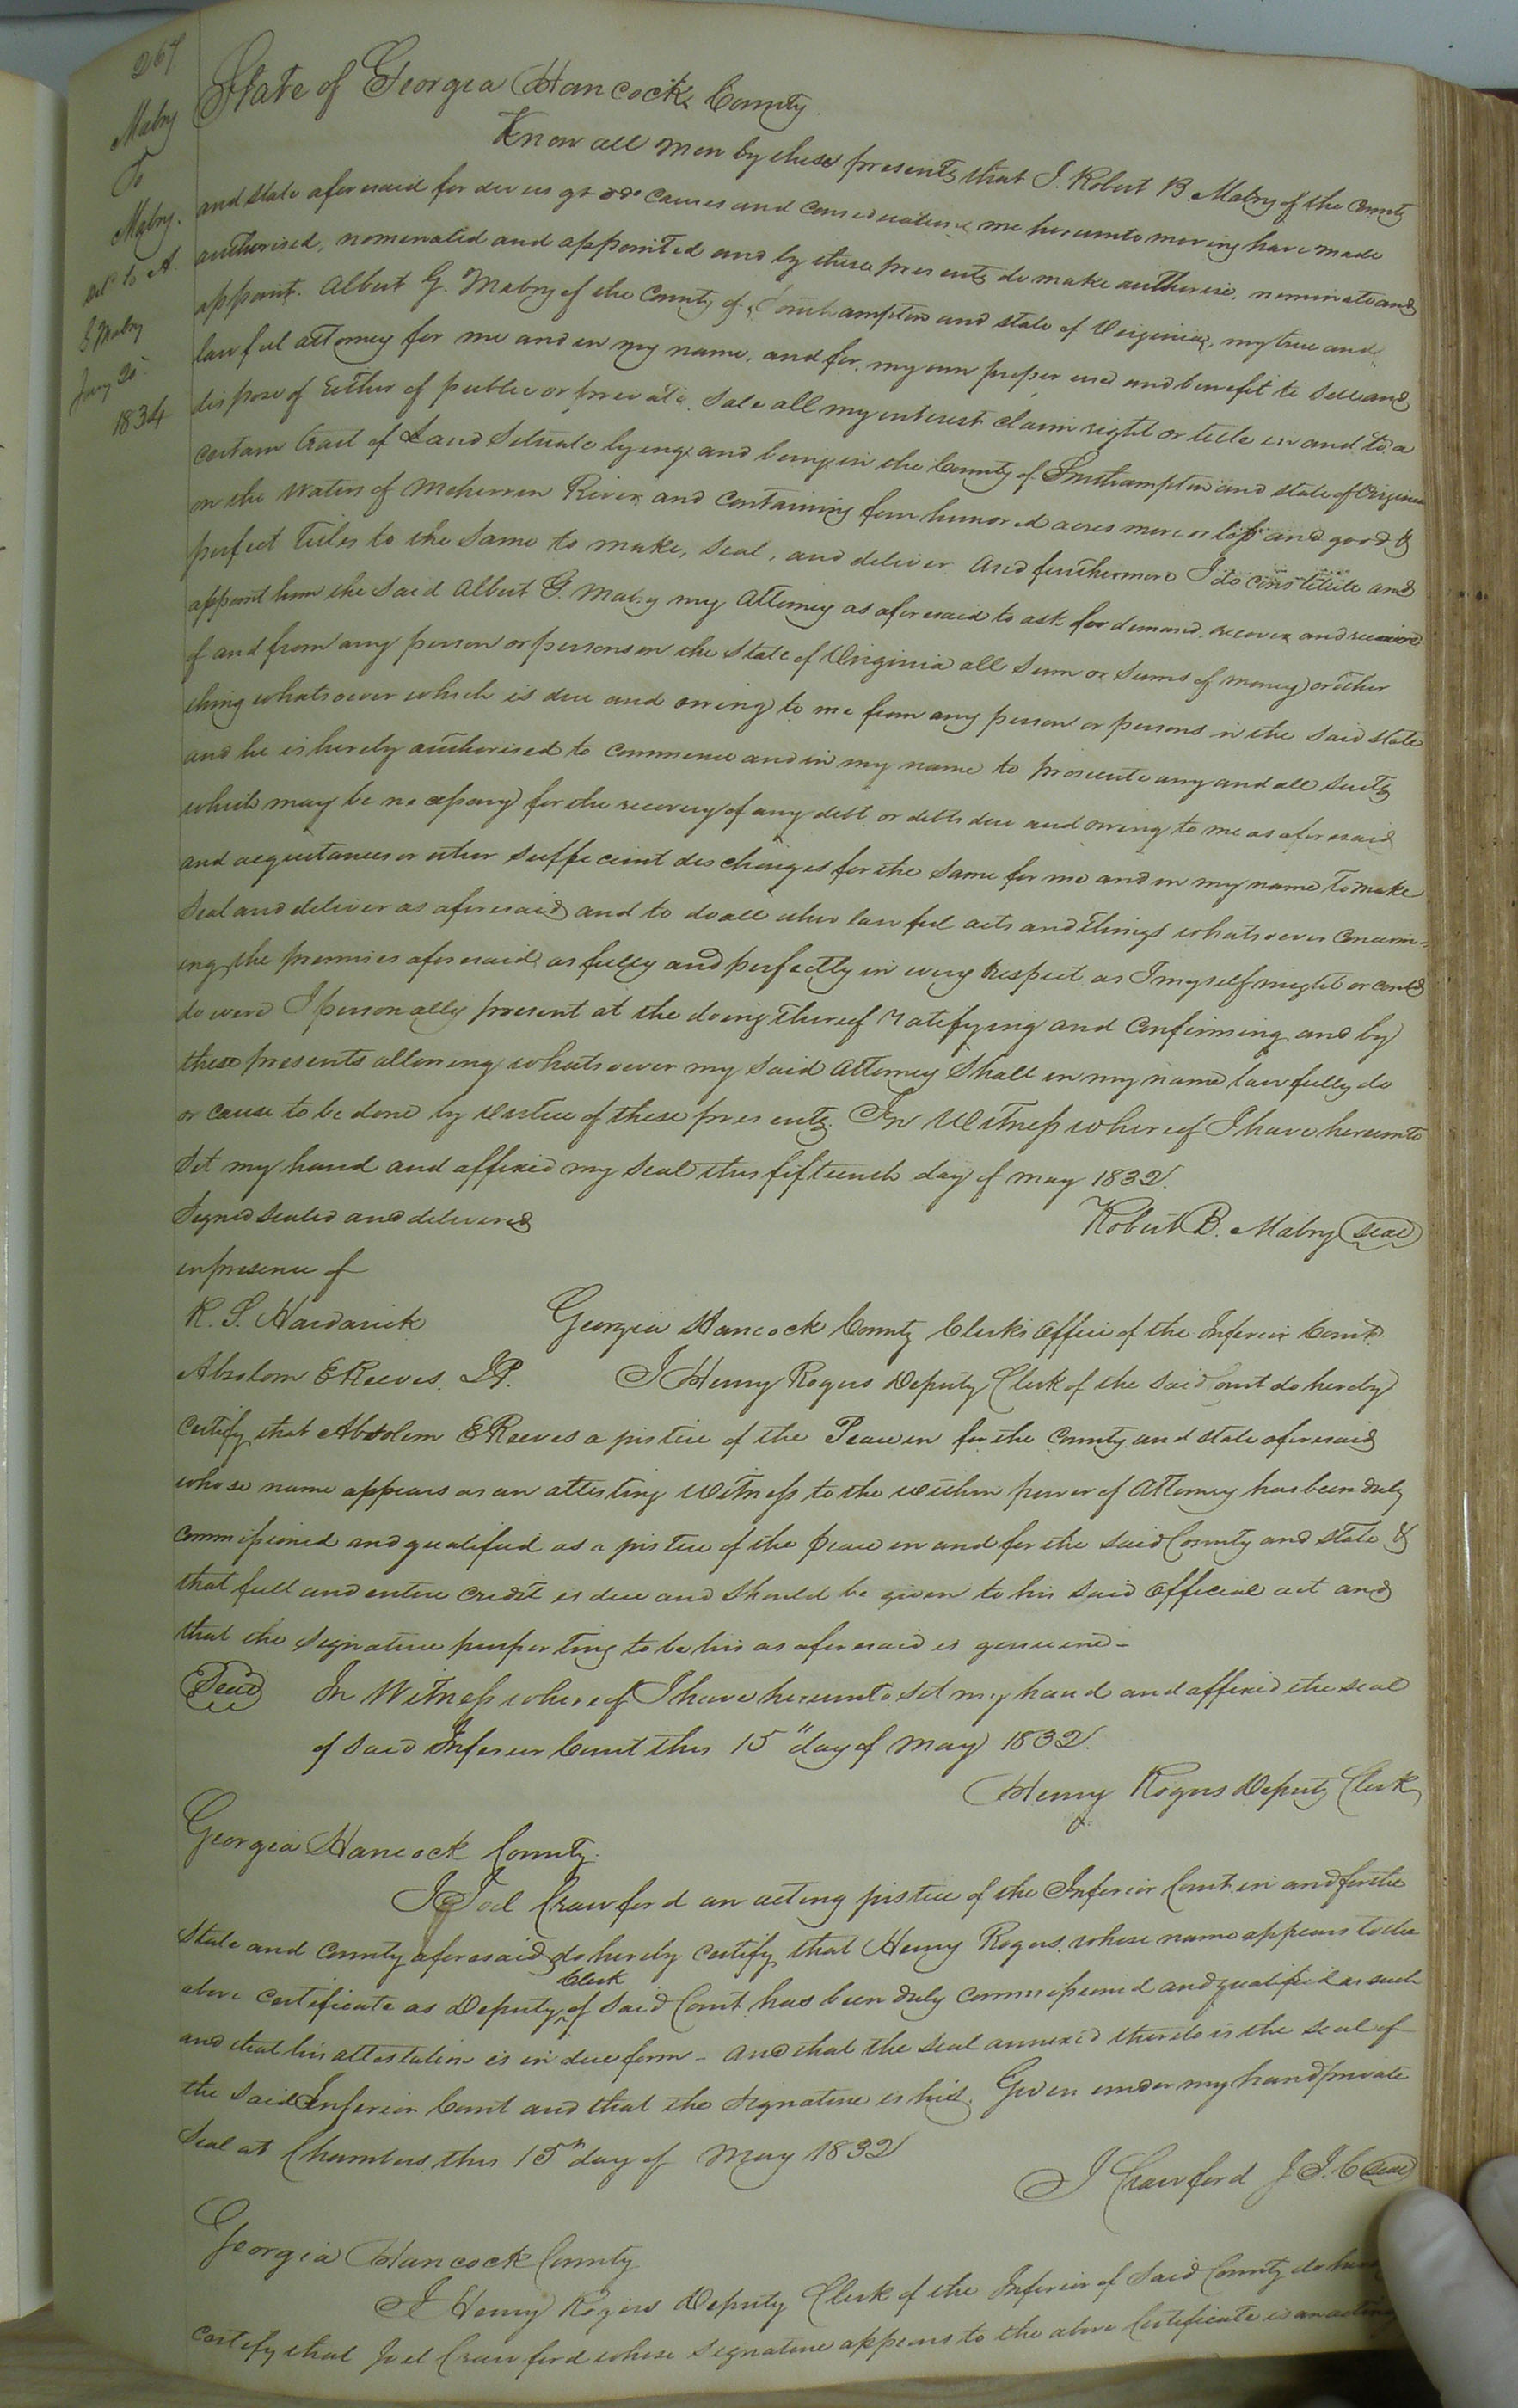 267
Mabry
To
Mabry.
Deld to A.
G Mabry
Jany 20th
1834
State of Georgia Hancock County.
Know all men by these presents that I. Robert B. Mabry of the County
and state aforesaid for divers gd & causes and considerations me hereunto moving have made
authorised, nominated and appointed and by these presents do make authorise, nominate and
appoint. Albert G. Mabry of the County of Southampton and state of Virginia, my true and
lawful attorney for me and in my name, and for my own proper use and benefit to sell and
dispose of Either of public or private Sale all my interest claim right or title in and to a
certain tract of Land Situate lying and being in the County of Southampton and state of Virginia
on the waters of Meherren River and containing four hundred acres more or less and good &
perfect Titles to the Same to make, seal, and deliver And furthermore I do constitute and
appoint him the said Albert G. Mabry my Attorney as aforesaid to ask for demand recover and receive
of and from any person or persons in the State of Virginia all sum or sums of money or other
thing whatsoever which is due and owing to me from any person or persons in the said state
and he is hereby authorised to commence and in my name to prosecute any and all suits
which may be necessary for the recovery of any debt or debts due and owing to me as aforesaid
and acquittances or other sufficient discharges for the same for me and in my name to make
Seal and deliver as aforesaid and to do all other lawful acts and things whatsoever concern=
ing the premises aforesaid as fully and perfectly in every respect as I myself might or could
do were I personally present at the doing thereof ratifying and confirming and by
these presents allowing whatsoever my said Attorney Shall in my name lawfully do
or cause to be done by virtue of these presents. In Witness whereof I have hereunto
Set my hand and affixed my seal this fifteenth day of may 1832.
Signed sealed and delivered
Robert B. Mabry (seal)
in presence of
R. S. Hardwick
Georgia Hancock County Clerks Office of the Inferior Court
Absolom E Reeves. J.P.
I Henry Rogers Deputy Clerk of the said Court do hereby
certify that Absolom E Reeves a justice of the Peace in for the County and state aforesaid
whose name appears as an attesting Witness to the within power of Attorney has been duly
commissioned and qualified as a justice of the peace in and for the said County and State &
that full and entire credit is due and should be given to his said Official act and
that the Signature purporting to be his as aforesaid is genuine -
(Seal) In Witness whereof I have hereunto set my hand and affixed the seal
of said Inferior Court this 15" day of May 1832.
Henry Rogers Deputy Clerk
Georgia Hancock County.
I Joel Crawford an acting justice of the Inferior Court in and for the
State and County aforesaid do hereby certify that Henry Rogers whose name appears to the
Clerk
above certificate as Deputy ^ of said Court has been duly commissioned and qualified as such
and that his attestation is in due form - and that the seal annexed thereto is the seal of
the said Inferior Court and that the signature is his. Given under my hand private
Seal at Chambers this 15th day of May 1832
J Crawford J. I. C (seal)
Georgia Hancock County
I Henry Rogers Deputy Clerk of the Inferior of said County do
certify that Joel Crawford whose signature appears to the above Certificate is an acting